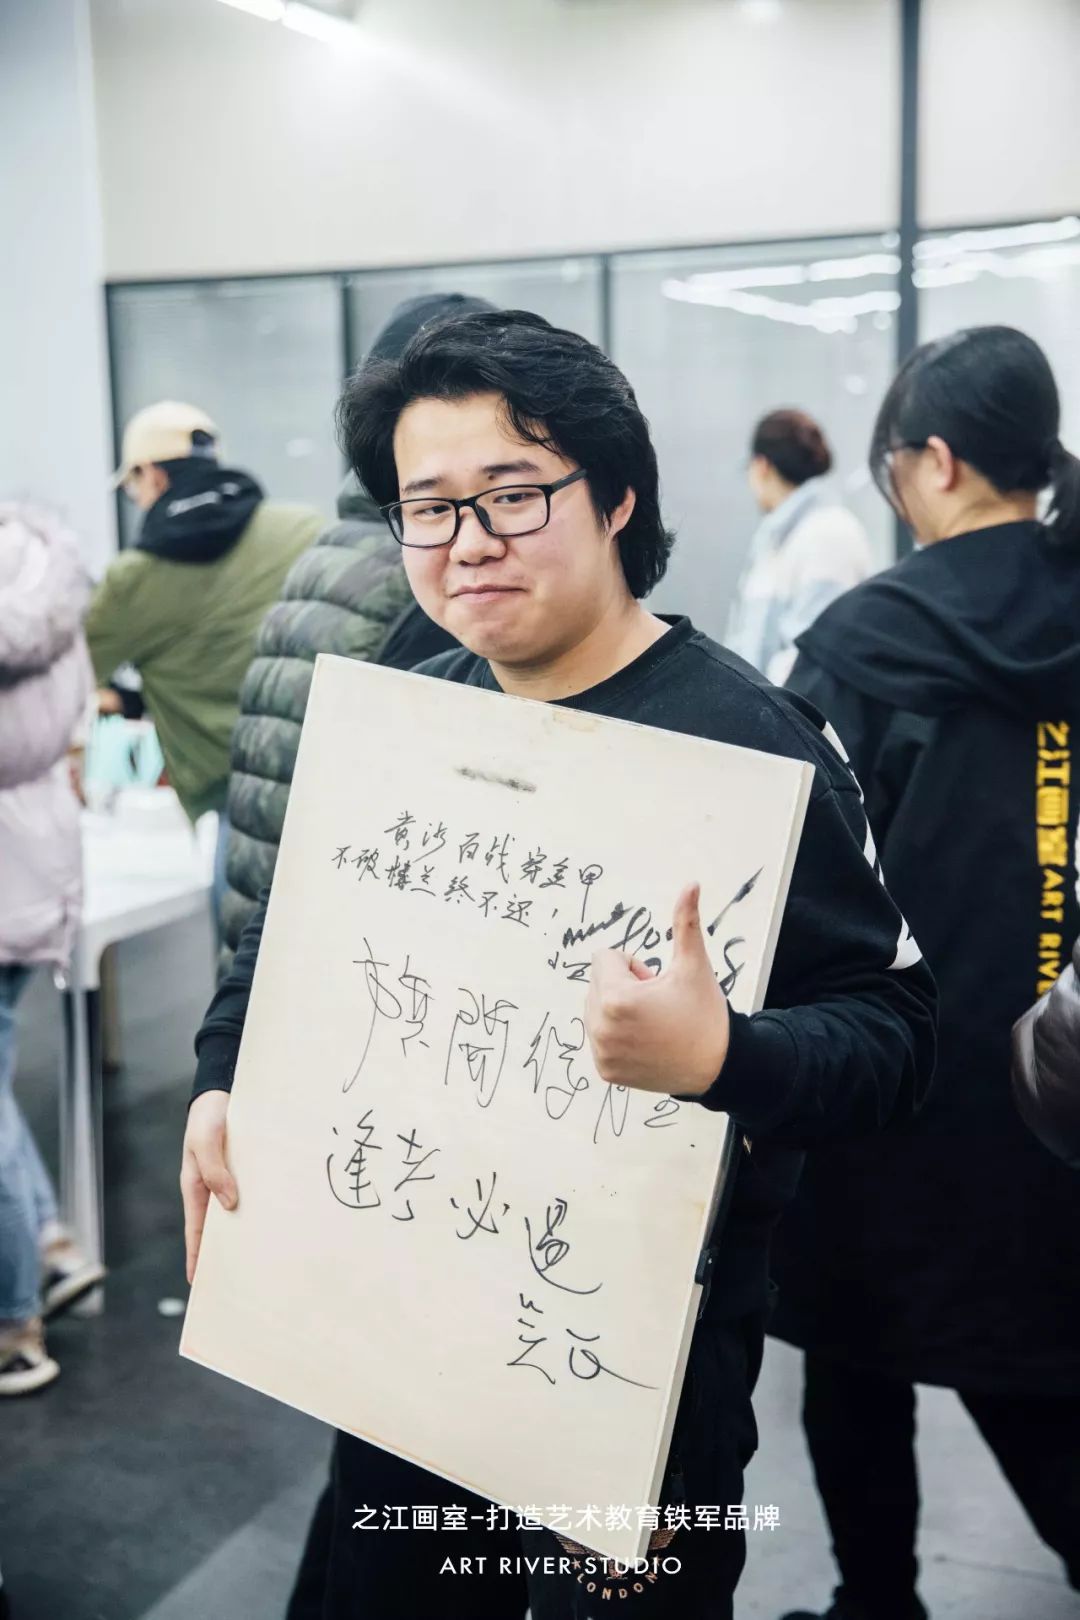 黄沙百战穿金甲
不破楼兰终不还！
旗開得勝.
逢考必過
之江画室ART RIVE
之江画室-打造艺术教育铁军品牌
ART RIVER STUDIO
LONDON